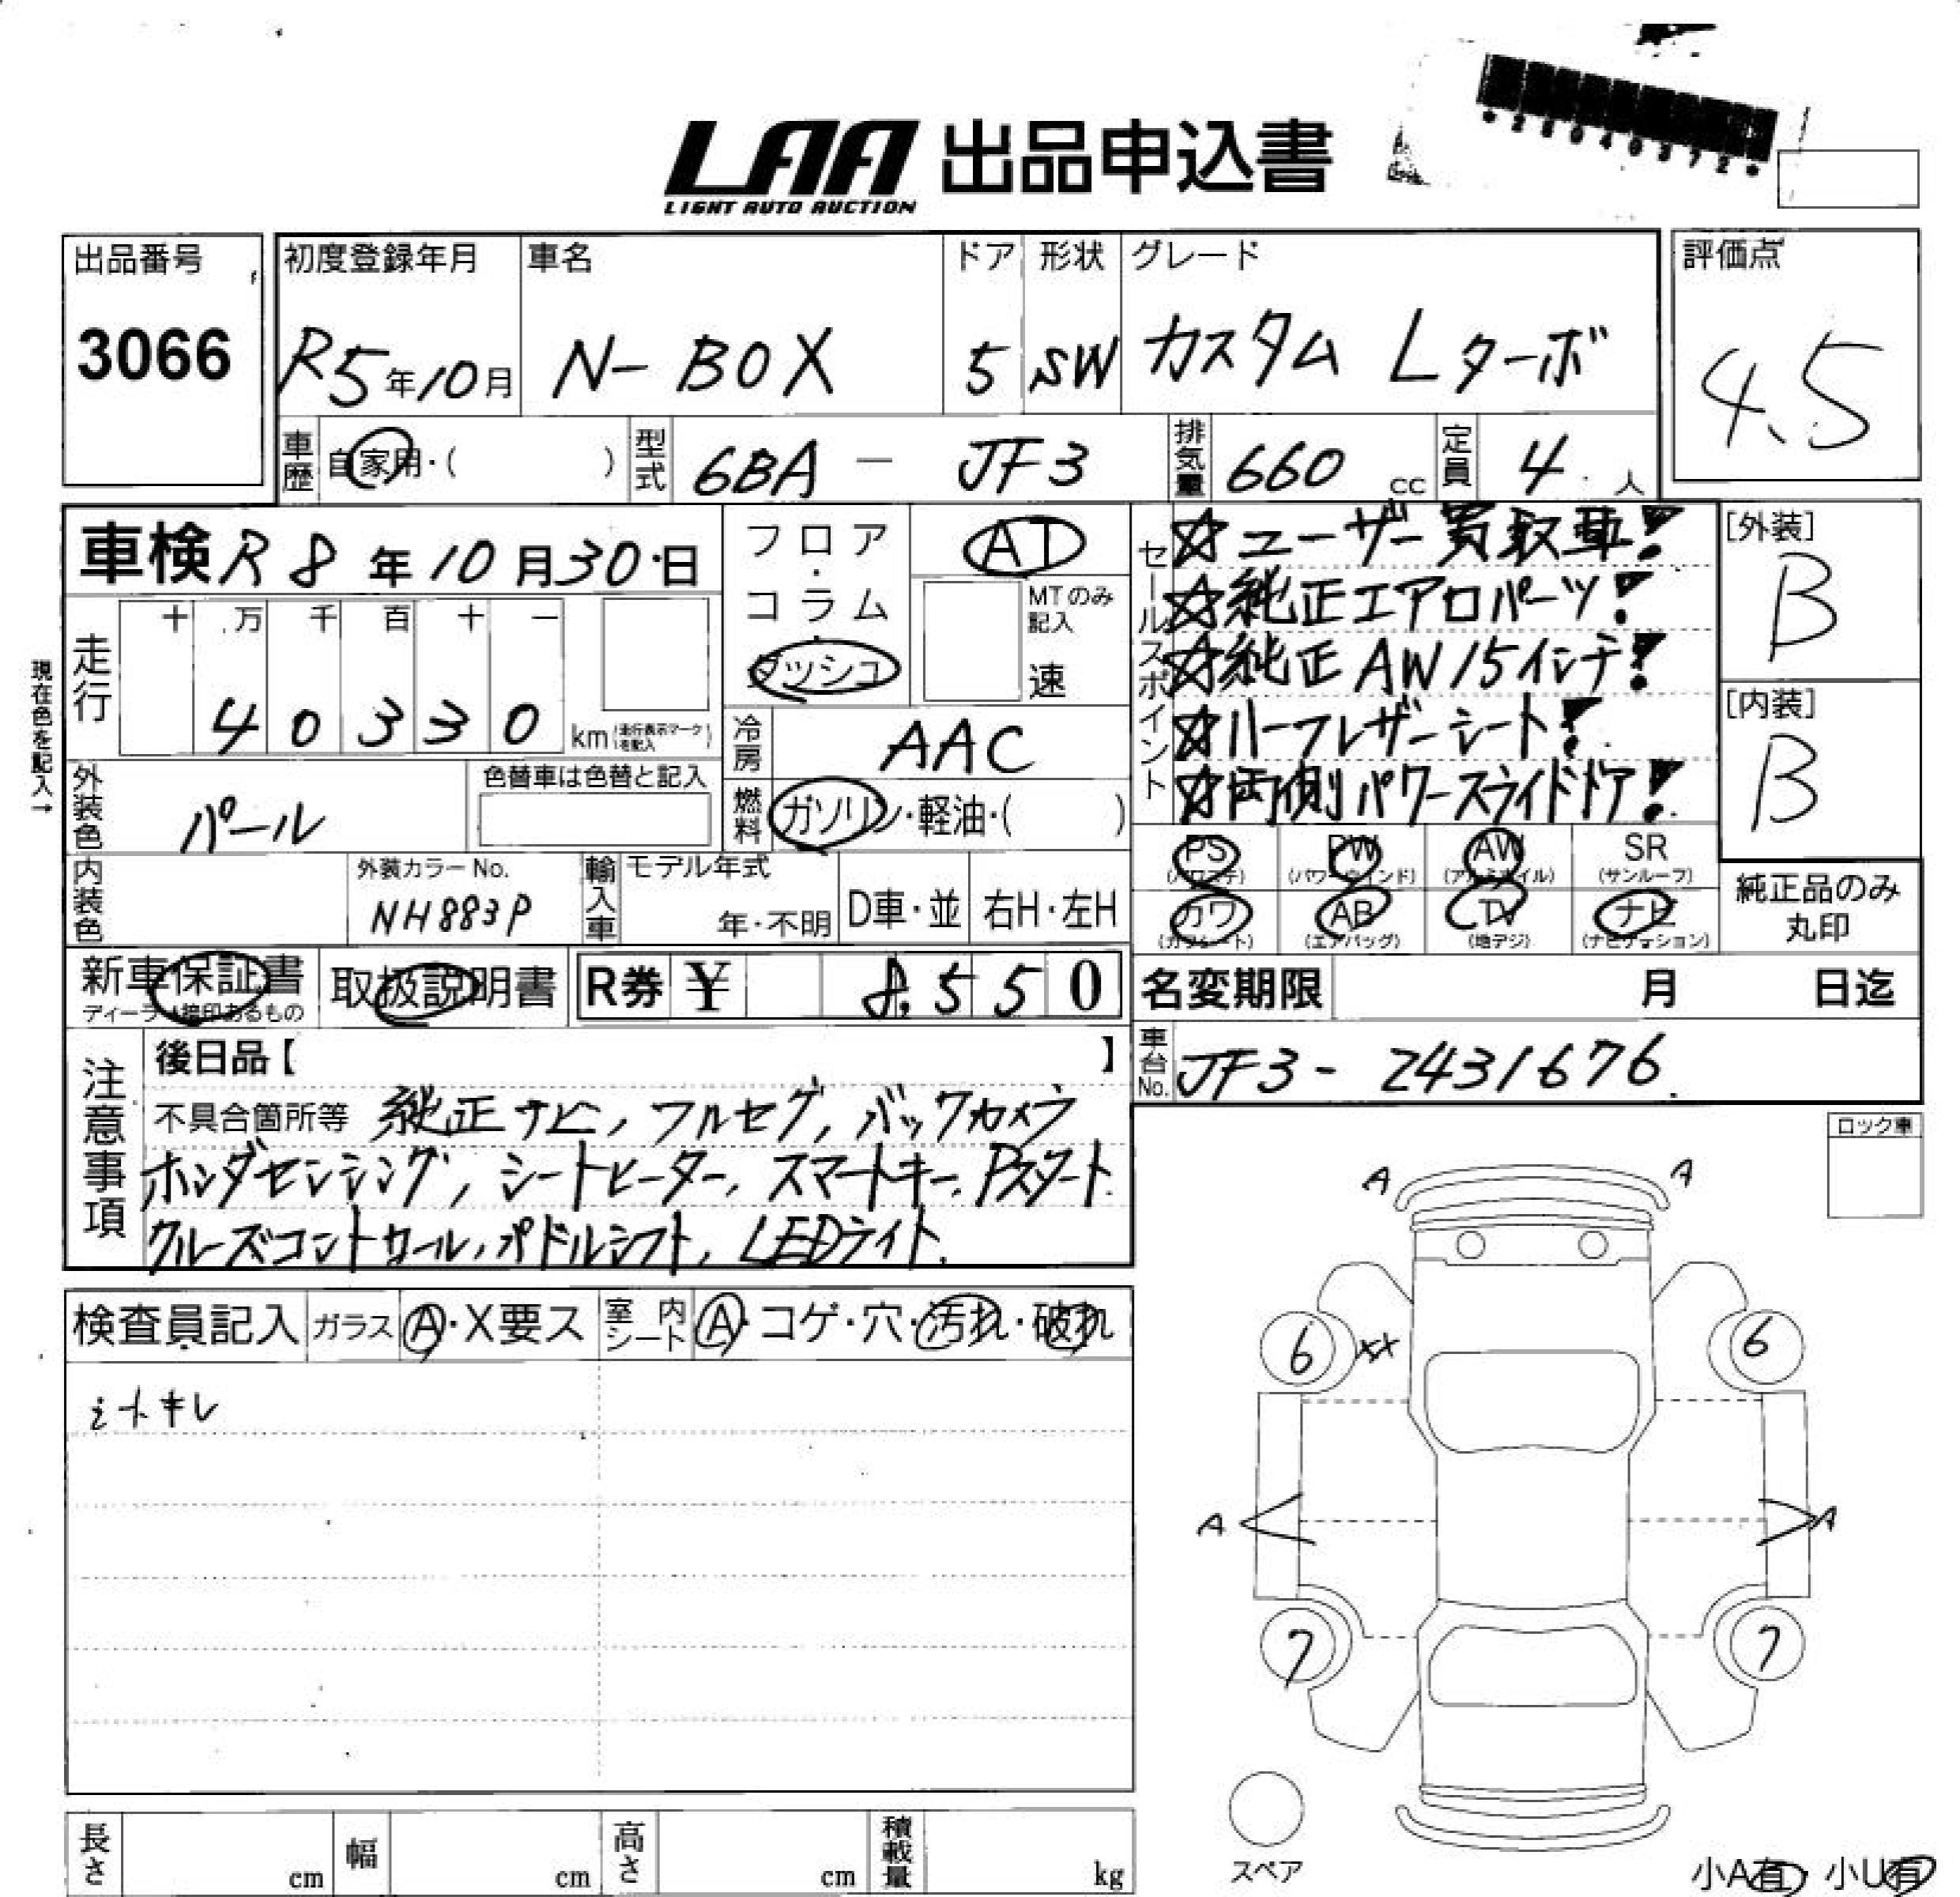 LAA 出品申込書
LIGHT AUTO AUCTION
*28040372*
出品番号 初度登録年月 車名 ドア 形状 グレード 評価点
3066 R5年10月 N-BOX 5 SW カスタム Lターボ 4.5
車歴 自家用・( ) 型式 6BA - JF3 排気量 660 cc 定員 4 人
車検 R8年10月30日
フロア・コラム・ダッシュ
AT
MTのみ記入
速
セールスポイント
☆ユーザー買取車!
☆純正エアロパーツ!
☆純正AW15インチ!
☆ハーフレザーシート!
☆両側パワースライドドア!
[外装]
B
[内装]
B
現在色を記入→
走行 十 万 千 百 十 一
4 0 3 3 0 km (走行表示マークを記入)
冷房 AAC
外装色 パール 色替車は色替と記入
燃料 ガソリン・軽油・( )
PS PW AW SR
(パワステ) (パワーウインド) (アルミホイル) (サンルーフ)
カワ AB TV ナビ
(カワシート) (エアバッグ) (地デジ) (ナビゲーション)
純正品のみ
丸印
内装色 外装カラーNo. NH883P 輸入車 モデル年式 年・不明 D車・並 右H・左H
新車保証書 取扱説明書 R券 ¥ 8,550 名変期限 月 日迄
ディーラー捺印あるもの
車台No. JF3-2431676
注意事項
後日品【 】
不具合箇所等 純正ナビ,フルセグ,バックカメラ
ホンダセンシング,シートヒーター,スマートキー,Pスタート
クルーズコントロール,パドルシフト,LEDライト.
ロック車
A A
検査員記入 ガラス A・X要ス 室内シート A・コゲ・穴・汚れ・破れ
6 XX 6
A A
7 7
スペア
長さ cm 幅 cm 高さ cm 積載量 kg
小A有・小U有